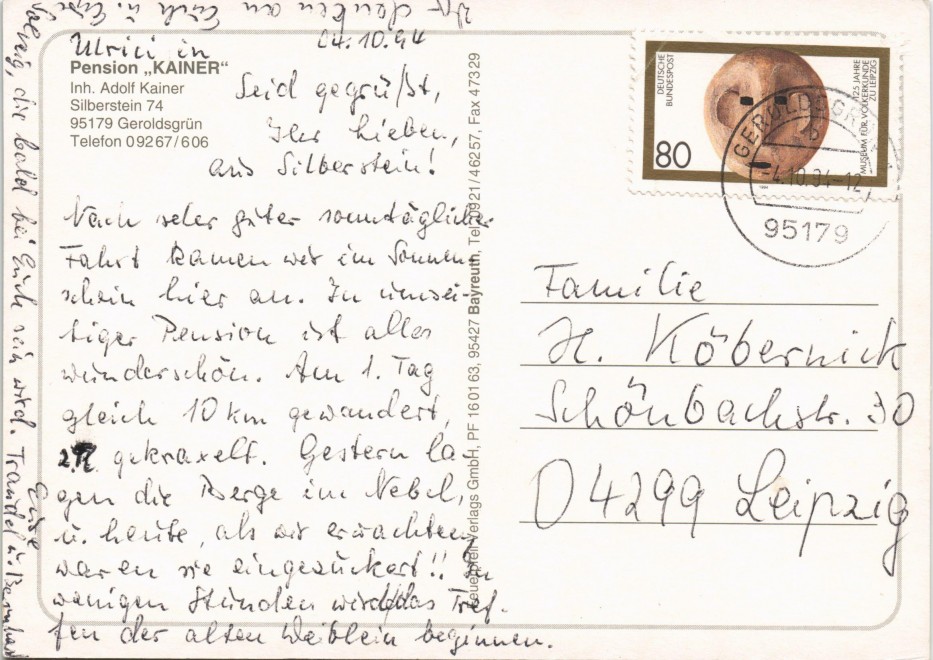 Ulrici in
Pension „KAINER“
Inh. Adolf Kainer
Silberstein 74
95179 Geroldsgrün
Telefon 09267/606
04.10.94
Seid gegrüßt,
Ihr Lieben,
aus Silberstein!
Nach sehr guter sonntäglicher
Fahrt kamen wir im Sonnen-
schein hier an. In unsei-
tiger Pension ist alles
wunderschön. Am 1. Tag
gleich 10 km gewandert,
z.T. gekraxelt. Gestern la-
gen die Berge im Nebel,
u. heute, als wir erwachten,
waren sie eingezuckert!! In
wenigen Stunden wird das Tref-
fen der alten Weiblein beginnen.
Wir denken an Euch u. Eure
Solveig, die bald bei Euch sein wird.
Eure
Traudel u.
Verlags GmbH, PF 160163, 95427 Bayreuth, Tel. 0921/46257, Fax 47329
DEUTSCHE
BUNDESPOST
80
125 JAHRE
MUSEUM FÜR VÖLKERKUNDE
ZU LEIPZIG
GEROLDSGRÜN
b
-4.10.94-12
95179
Familie
H. Köbernick
Schönbachstr. 30
04299 Leipzig